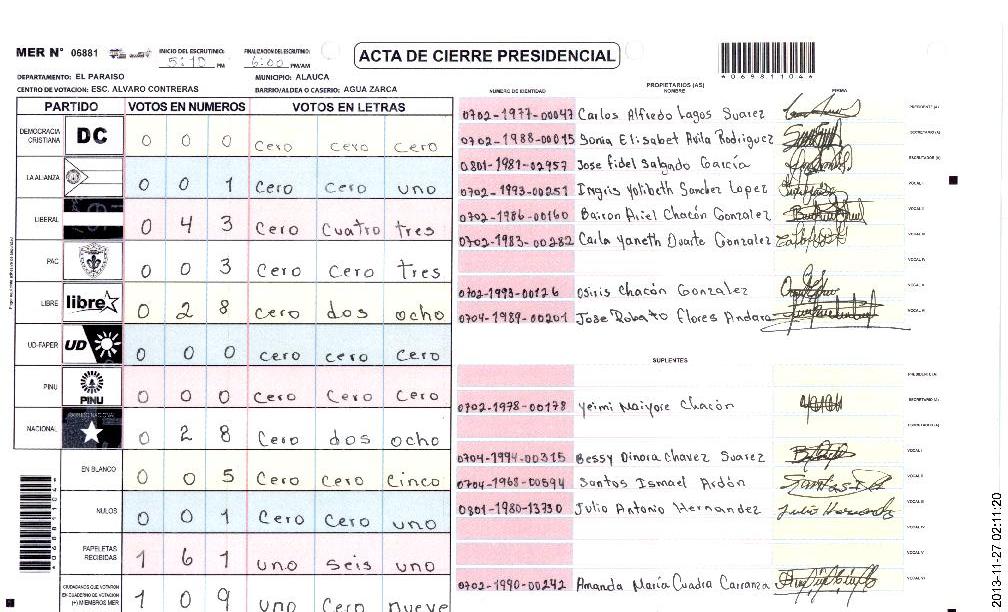 MER N° 06881 INICIO DEL ESCRUTINIO: 5:10 PM FINALIZACION DEL ESCRUTINIO: 6:00 PM/AM
ACTA DE CIERRE PRESIDENCIAL
*06981104*
DEPARTAMENTO: EL PARAISO MUNICIPIO: ALAUCA
CENTRO DE VOTACION: ESC. ALVARO CONTRERAS BARRIO/ALDEA O CASERIO: AGUA ZARCA
PARTIDO VOTOS EN NUMEROS VOTOS EN LETRAS
DEMOCRACIA CRISTIANA DC 0 0 0 Cero cero cero
LA ALIANZA 0 0 1 Cero Cero uno
LIBERAL 0 4 3 Cero Cuatro tres
PAC 0 0 3 Cero Cero tres
LIBRE libre 0 2 8 cero dos ocho
UD-FAPER UD 0 0 0 cero cero Cero
PINU PINU 0 0 0 Cero Cero Cero
NACIONAL 0 2 8 Cero dos ocho
EN BLANCO 0 0 5 Cero Cero Cinco
NULOS 0 0 1 Cero Cero uno
PAPELETAS RECIBIDAS 1 6 1 uno seis uno
CIUDADANOS QUE VOTARON EN CUADERNO DE VOTACION (+) MIEMBROS MER 1 0 9 uno Cero nueve
PROPIETARIOS (AS)
NUMERO DE IDENTIDAD NOMBRE FIRMA
0702-1977-00047 Carlos Alfredo Lagos Suarez PRESIDENTE (A)
0702-1988-00015 Sonia Elisabet Avila Rodriguez SECRETARIO (A)
0801-1981-02957 Jose Fidel Salgado García ESCRUTADOR (A)
0702-1993-00251 Ingris Yolibeth Sanchez Lopez VOCAL I
0702-1986-00160 Bairon Ariel Chacón Gonzalez VOCAL II
0702-1983-00282 Carla Yaneth Duarte Gonzalez VOCAL III
VOCAL IV
0702-1993-00126 Osiris Chacón Gonzalez VOCAL V
0704-1989-00201 Jose Roberto Flores Andara VOCAL VI
SUPLENTES
PRESIDENTE (A)
0702-1978-00178 Yeimi Maiyore Chacón SECRETARIO (A)
ESCRUTADOR (A)
0704-1994-00315 Bessy Dinora Chavez Suarez VOCAL I
0704-1968-00594 Santos Ismael Ardón VOCAL II
0801-1980-13730 Julio Antonio Hernandez VOCAL III
VOCAL IV
VOCAL V
0702-1990-00242 Amanda María Cuadra Carranza VOCAL VI
2013-11-27 02:11:20